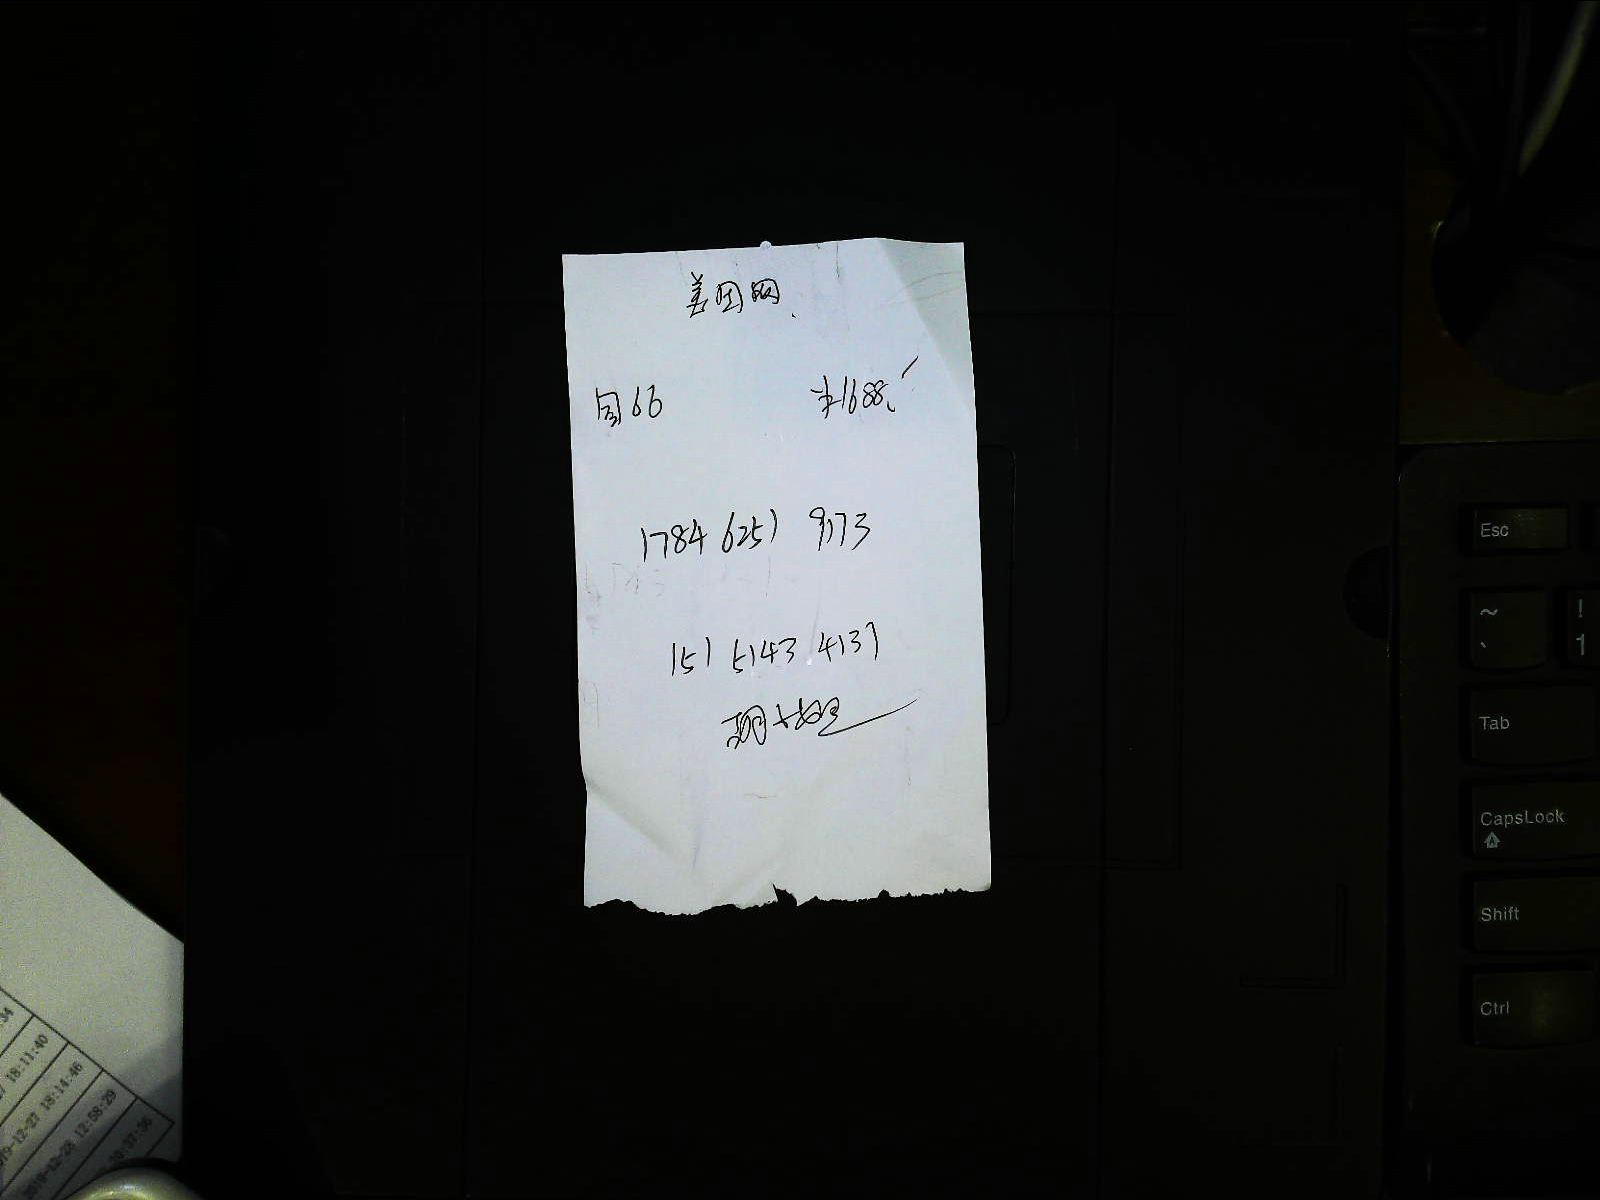 美团网
包66 ¥1688
1784 6251 9173
151 5143 4137
胡大姐
Esc
~
`
!
1
Tab
CapsLock
Shift
Ctrl
18:11:40
19-12-27 18:14:46
2019-12-28 12:58:29